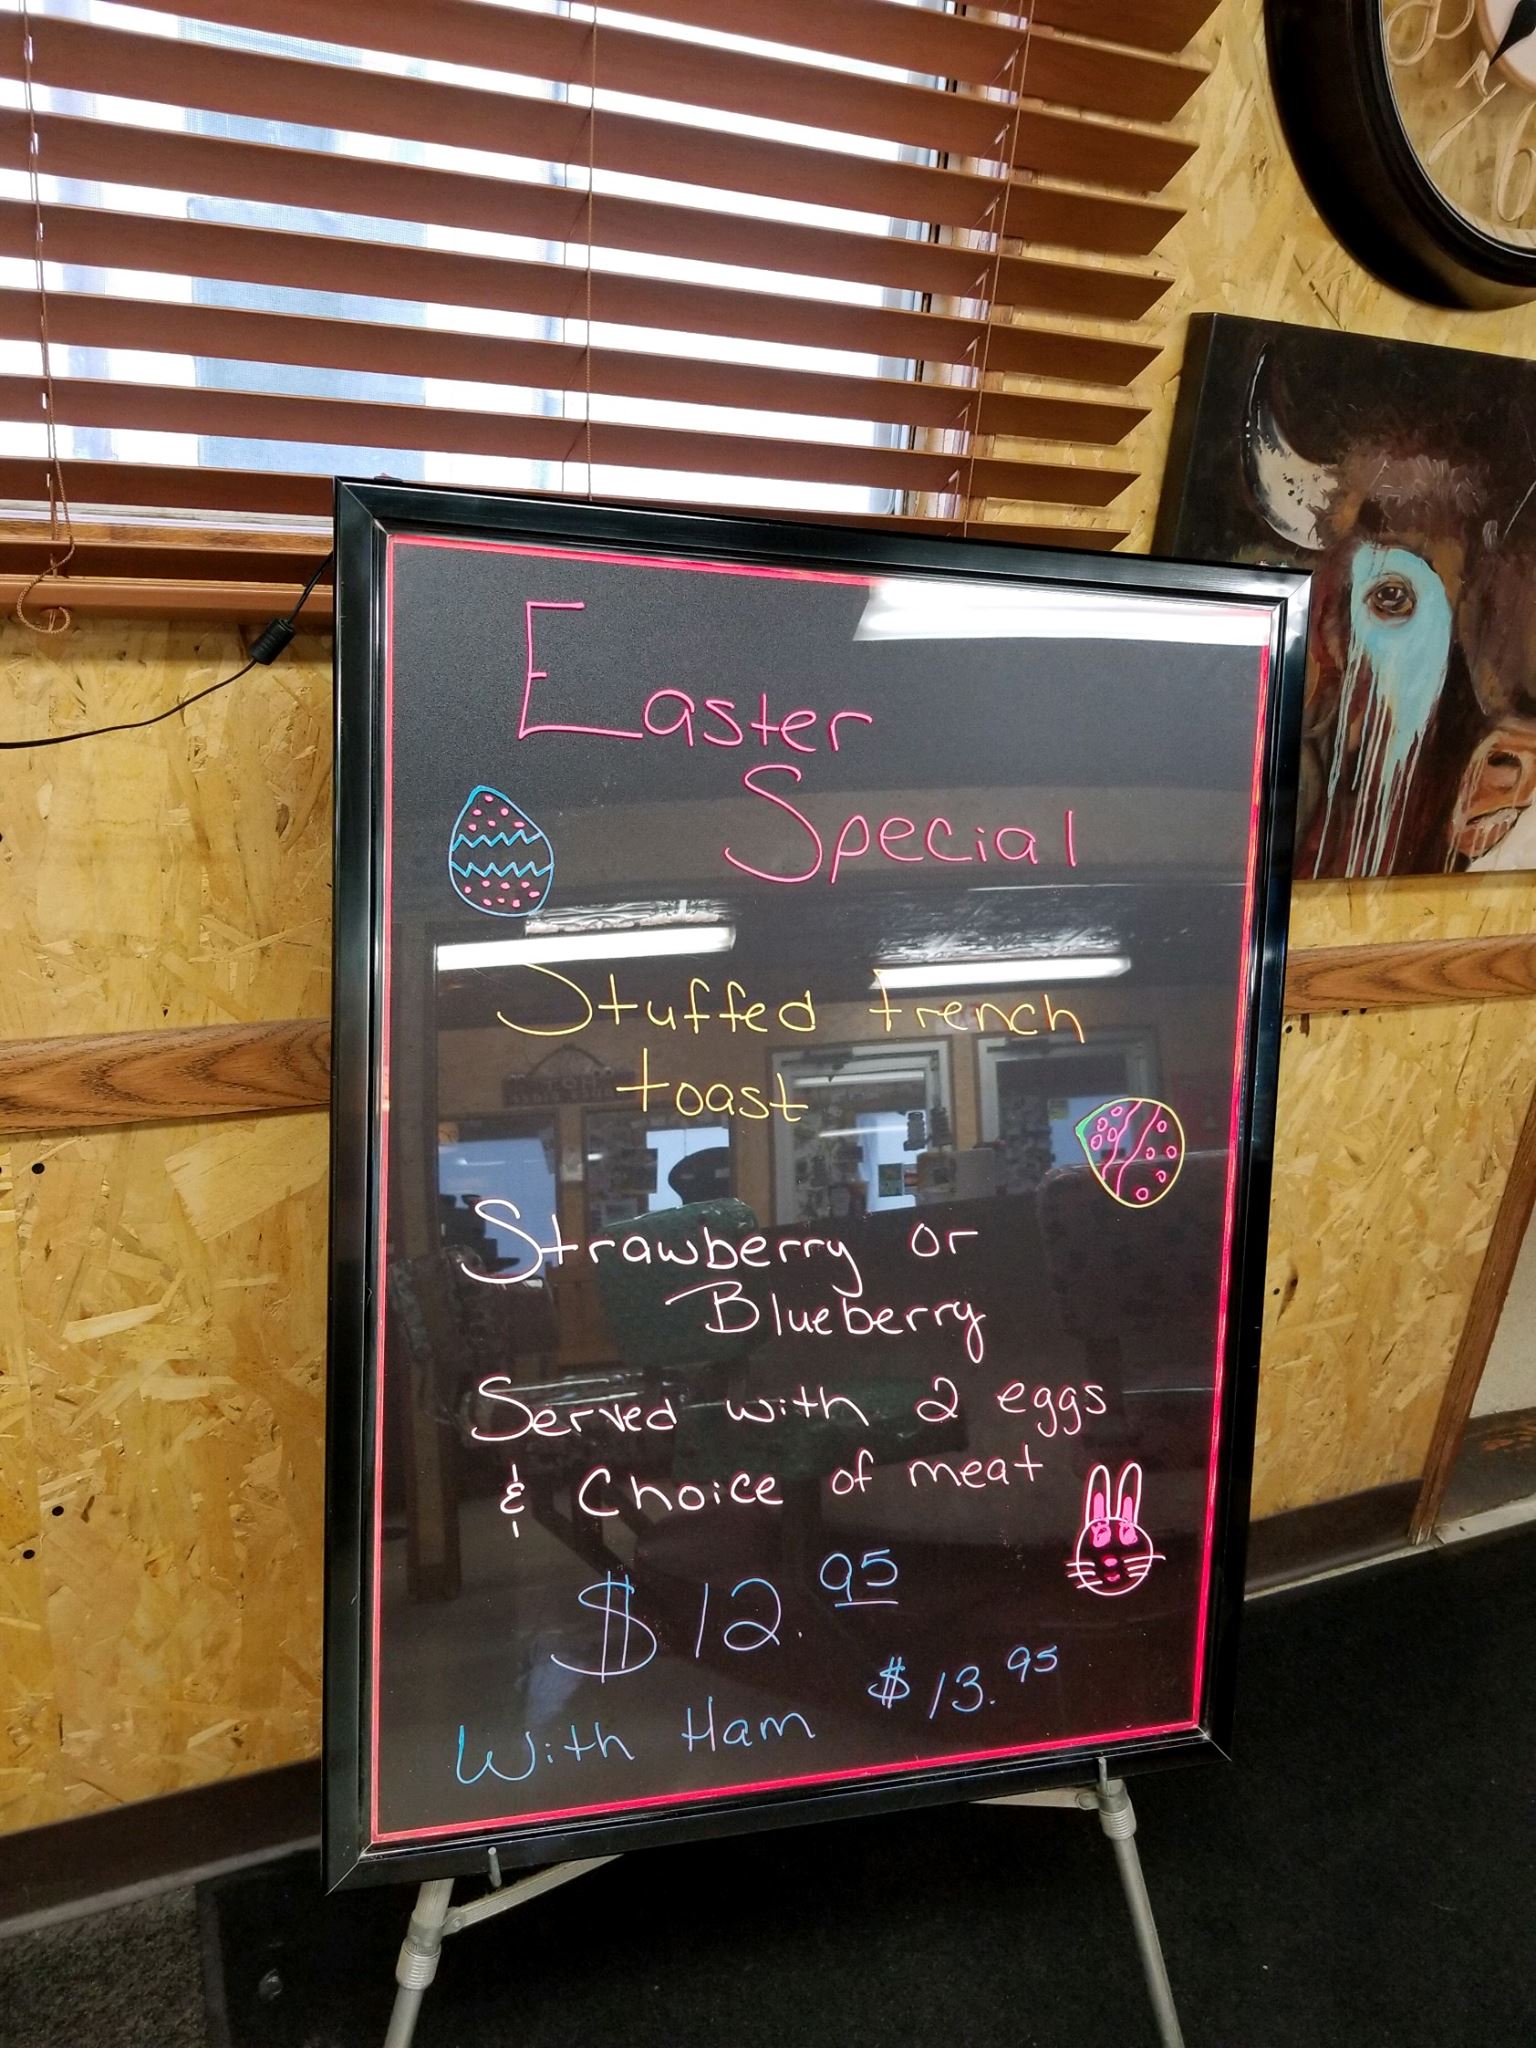 Easter
Special
Stuffed french
toast
Strawberry or
Blueberry
Served with 2 eggs
& Choice of meat
$12.95
With Ham $13.95